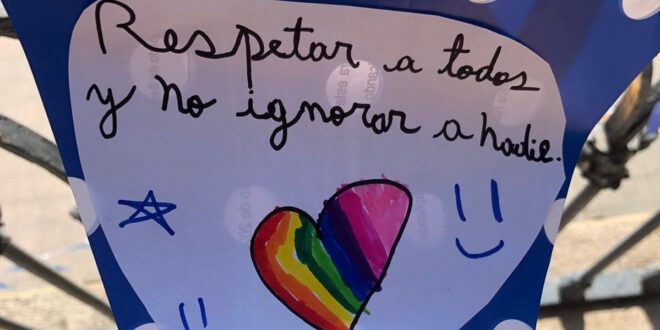 Respetar a todos
y no ignorar a nadie.